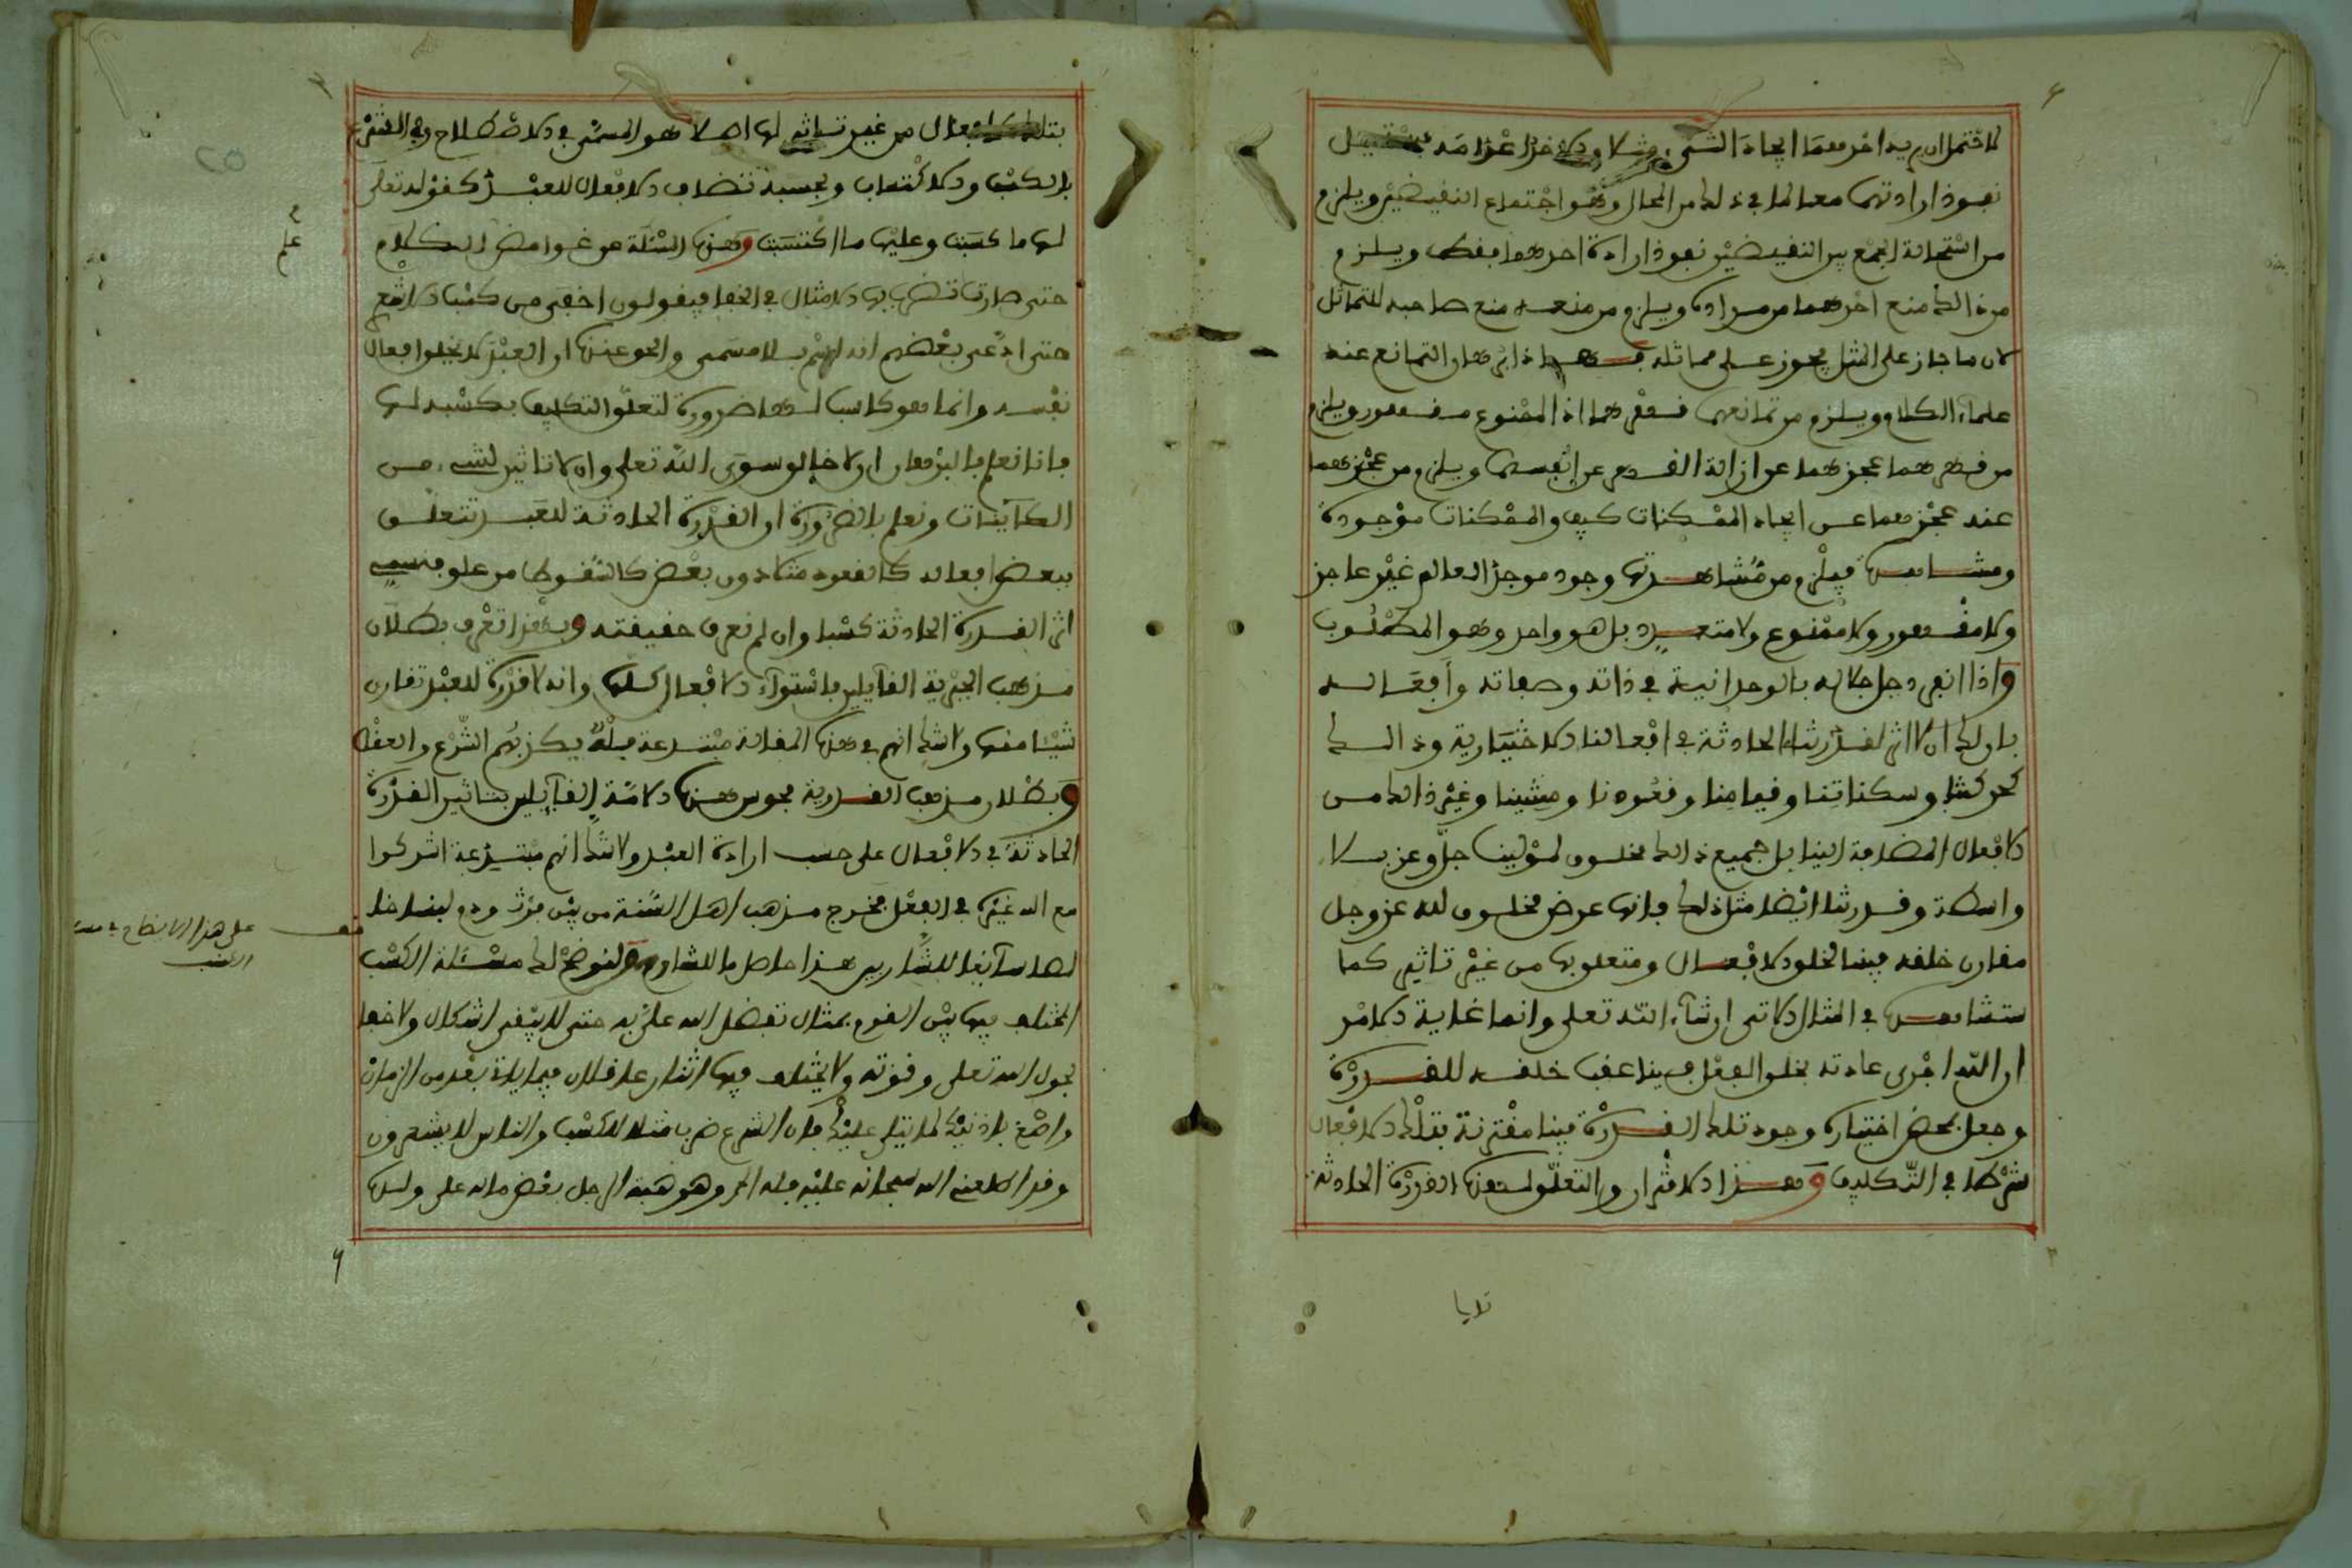 لاحتمال ان يريد احدهما ايجاد الشيء مثلا والاخر اعدامه فيستحيل
نفوذ ارادتهما معا لما في ذلك من المحال وهو اجتماع النقيضين ويلزم
من استحالة الجمع بين النقيضين نفوذ ارادة احدهما فقط ويلزم
من ذالك منع احدهما من مراده ويلزم من منعه منع صاحبه للتماثل
لان ما جاز على المثل يجوز على مماثله فهذا برهان التمانع عند
علماء الكلام ويلزم من تمانعهما قهرهما اذ الممنوع مقهور ويلزم
من قهرهما عجزهما عن ازالة القهر عن انفسهما ويلزم من عجزهما
عند عجزهما عن ايجاد الممكنات كيف والممكنات موجودة
ومشاهدة فيلزم من مشاهدتها وجود موجد العالم غير عاجز
ولا مقهور ولا ممنوع ولا متعدد بل هو واحد وهو المطلوب
واذا انفرد جل جلاله بالوحدانية في ذاته وصفاته وأفعاله
بان لك ان لا اثر لقدرتنا الحادثة في افعالنا الاختيارية وذالك
كحركتنا وسكناتنا وقيامنا وقعودنا ومشينا وغير ذالك من
الافعال المضافة الينا بل جميع ذالك مخلوق لمولينا جل وعز بلا
واسطة وقدرتنا ايضا مثل ذلك فانها عرض مخلوق لله عز وجل
مقارن خلقه فينا لخلق الافعال ومتعلق بها من غير تاثير كما
ستشاهده في المثال الاتي ان شاء الله تعلى وانما غاية الامر
ان الله اجرى عادته بخلق الفعل فينا عقب خلقه للقدرة
وجعل بمحض اختياره وجود تلك القدرة فينا مقترنة بتلك الافعال
شرطا في التكليف وهذا الاقتران والتعلق لهذه القدرة الحادثة
تلايا
بتلك الافعال من غير تاثير لها اصلا هو المسمى في الاصطلاح وفي الشرع
بالكسب والاكتساب وبحسبه تضاف الافعال للعبد كقوله تعلى
لها ما كسبت وعليها ما اكتسبت وهذه المسئلة هي غوامض الكلام
حتى صارت تضرب بها الامثال في الخفاء فيقولون اخفى من كسب الاشع
حتى ادعى بعضهم انه اسم بلا مسمى والحق عندنا ان العبد لا يخلق افعال
نفسه وانما هو كاسب لها ضرورة لتعلق التكليف بكسبه لها
فانا نعلم بالبرهان ان لا خالق سوى الله تعلى وان لا تاثير لشيء من
الكائنات ونعلم بالضرورة ان القدرة الحادثة للعبد تتعلق
ببعض افعاله كالقعود مثلا دون بعض كالسقوط من علو فنسمي
اثر القدرة الحادثة كسبا وان لم نعرف حقيقته وبهذا تعرف بطلان
مذهب الجبرية القائلين باستواء الافعال كلها وانه لا قدرة للعبد تقارن
شيئا منها ولا شك انهم في هذه المقالة مبتدعة بله يكذبهم الشرع والعقل
وبطلان مذهب القدرية مجوس هذه الامة القائلين بتاثير القدرة
الحادثة في الافعال على حسب ارادة العبد ولا شك انهم مبتدعة اشركوا
مع الله غيره في الفعل فخرج مذهب اهل السنة من بين فرث ودم لبنا خا
لصا سائغا للشاربين هذا حاصل ما للشارح ولنوضح لك مسئلة الكسب
المختلف فيها بين القوم بمثال تفضل الله علي به حتى لا يبقى اشكال ولا خفا
بحول الله تعلى وقوته ولا يختلف فيها اثنان عاقلان فيما ياتي بعد من الزمان
واصغ باذنيك لما يتلى عليك فان الشرع ضرب مثلا للكسب والناس لا يشعرون
وقد اطلعني الله سبحانه عليه فله الحمد وهو هبة الرجل بعض ماله على ولده
على هذا الايضاح في مسئلة
الكسب